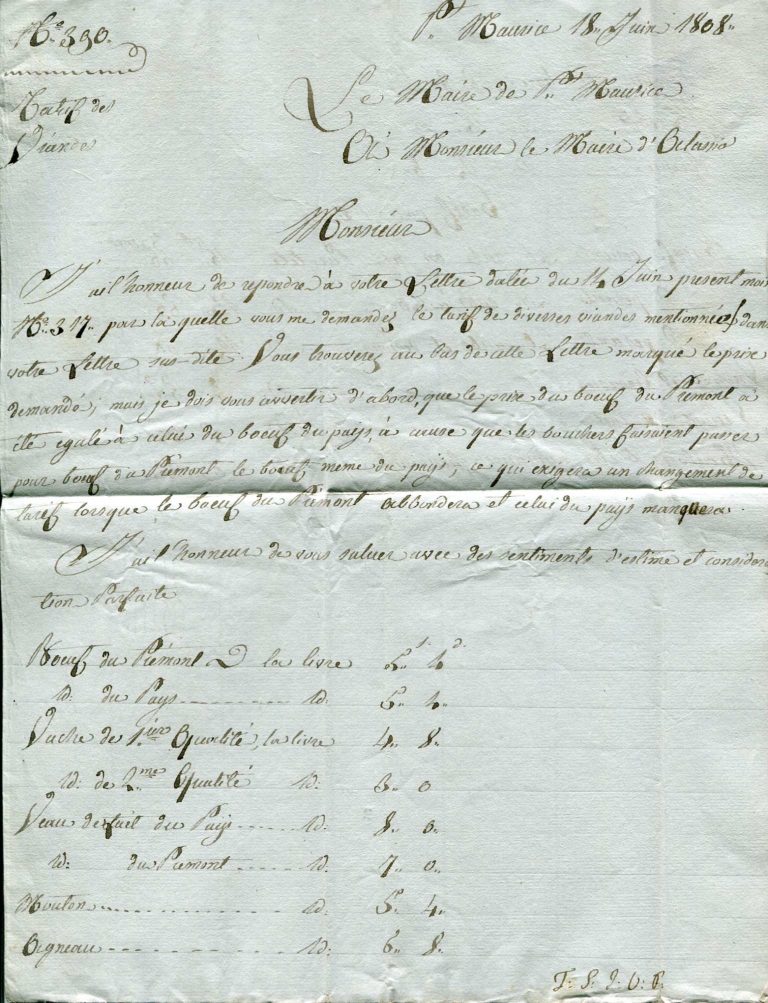 N.º 390.
P.t Maurice 18 Juin 1808
Tarif des
Viandes
Le Maire de P.t Maurice
A Monsieur le Maire d'
Monsieur
J'ai l'honneur de repondre à votre Lettre datée du 14 Juin present mois
N.º 317 par la quelle vous me demandez le tarif de diverses viandes mentionnées dans
votre Lettre sus-dite. Vous trouverez au bas de cette Lettre marqué le prix
demandé; mais je dois vous avertir d'abord, que le prix du boeuf du Piémont a
été egalé à celui du boeuf du pays, à cause que les bouchers faisaient passer
pour boeuf du Piémont le boeuf meme du pays; ce qui exigera un changement de
tarif lorsque le boeuf du Piémont abbondera et celui du pays manquera.
J'ai l'honneur de vous saluer avec des sentiments d'estime et considera
tion Parfaite
Boeuf du Piémont la livre 5.s 4.d
id: du Pays id: 5 4
Vache de 1.ière Qualité, la livre 4 8
id: de 2.me Qualité id: 3 0
Veau de lait du Pays id: 8 0
id: du Piémont id: 7 0
Mouton id: 5 4
Agneau id: 6 8
T. S. I. V. P.